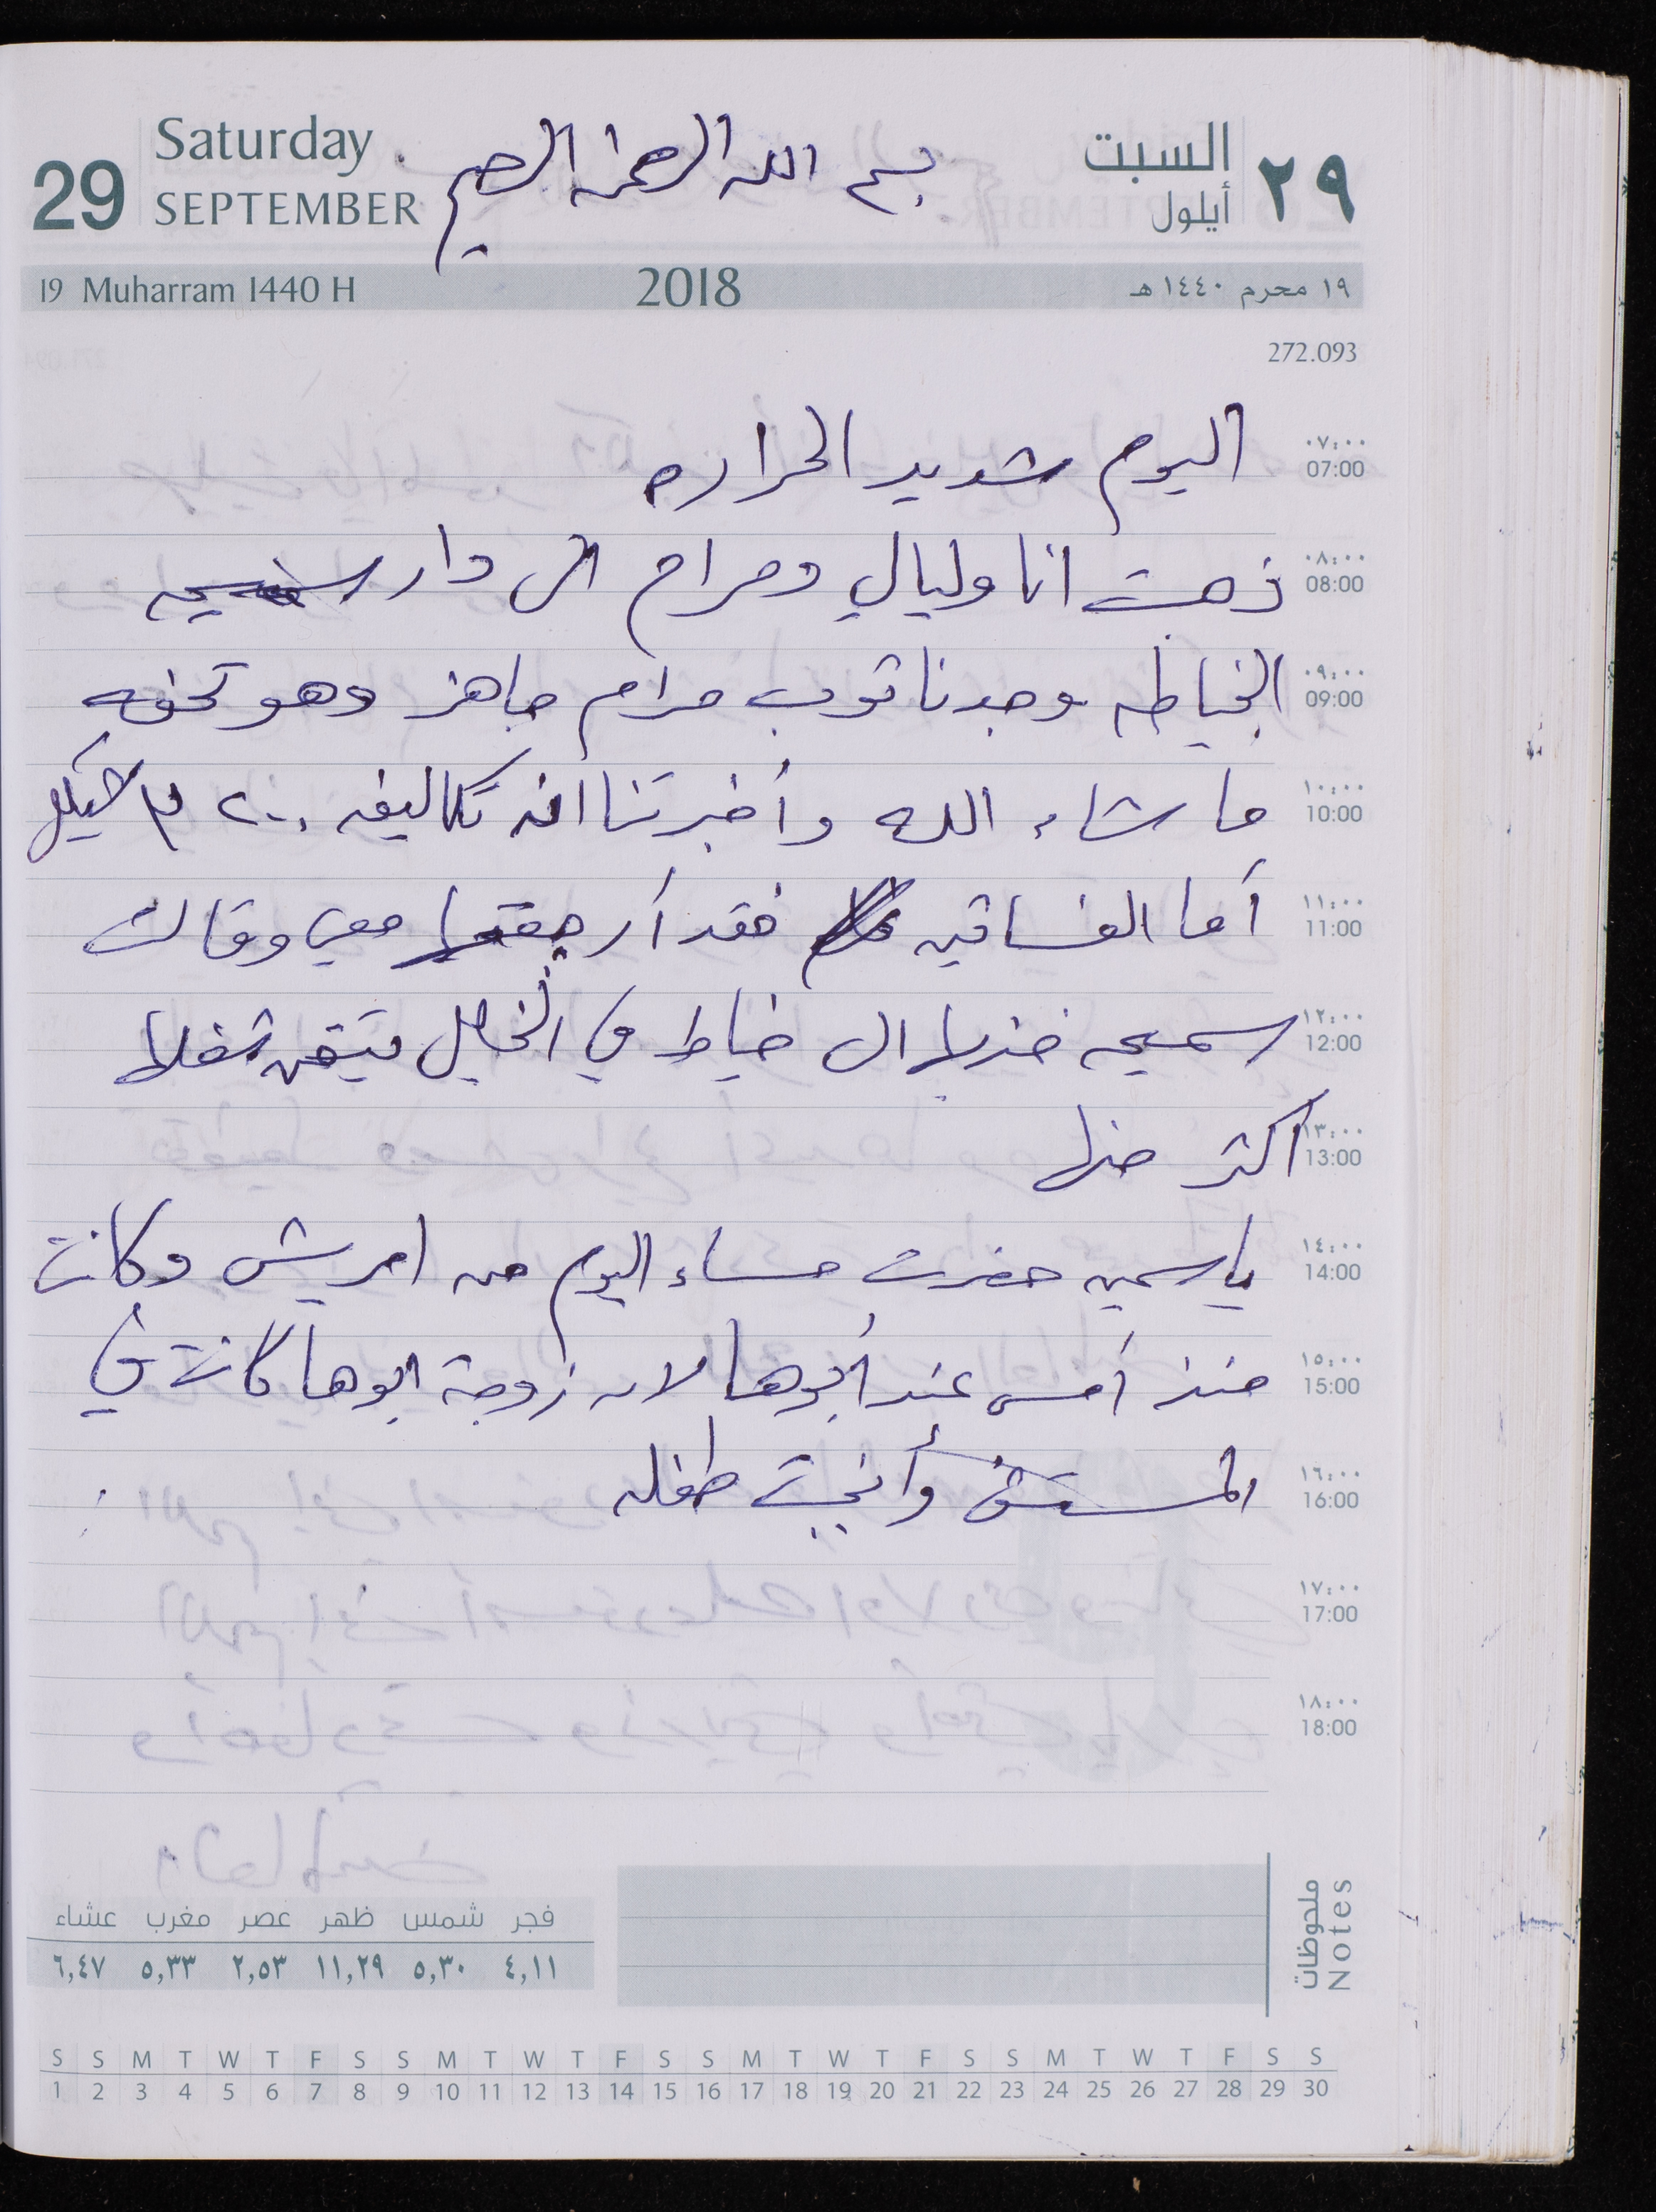 Saturday
29 SEPTEMBER
بسم الله الرحمن الرحيم
السبت
٢٩ أيلول
19 Muharram 1440 H 2018 ١٩ محرم ١٤٤٠ هـ
272.093
٠٧:٠٠
07:00
اليوم شديد الحراره
٠٨:٠٠
08:00
ذهبت انا وليالي ومرام الى دار سميحه
٠٩:٠٠
09:00
الخياطه وجدنا توب مرام جاهز وهو تحفه
١٠:٠٠
10:00
ما شاء الله وأخبرتنا انه تكاليفه ٢٠٠٠ شيكل
١١:٠٠
11:00
أما الفساتين فقد أرجعتها معي وقالت
١٢:٠٠
12:00
سميحه خذيها الى خياط في الخليل يتقن شغلها
١٣:٠٠
13:00
اكثر منها
١٤:٠٠
14:00
ياسمين حضرت مساء اليوم من امريش وكانت
١٥:٠٠
15:00
منذ أمس عند أبوها لان زوجة ابوها كانت في
١٦:٠٠
16:00
المستشفى وأنجبت طفله
١٧:٠٠
17:00
١٨:٠٠
18:00
ملحوظات
Notes
فجر شمس ظهر عصر مغرب عشاء
٤,١١ ٥,٣٠ ١١,٢٩ ٢,٥٣ ٥,٣٣ ٦,٤٧
S S M T W T F S S M T W T F S S M T W T F S S M T W T F S S
1 2 3 4 5 6 7 8 9 10 11 12 13 14 15 16 17 18 19 20 21 22 23 24 25 26 27 28 29 30